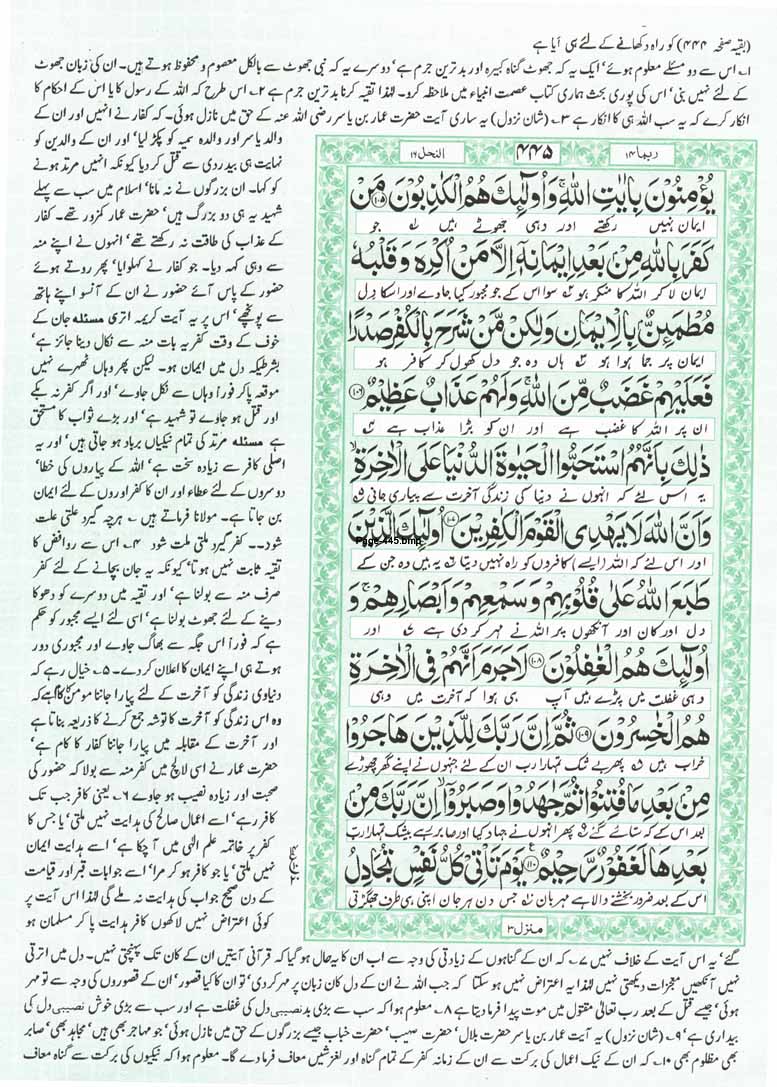 (بقیہ صفحہ ۴۴۴) کو راہ دکھانے کے لئے ہی آیا ہے
۱۔ اس سے دو مسئلے معلوم ہوئے' ایک یہ کہ جھوٹ گناہ کبیرہ اور بدترین جرم ہے' دوسرے یہ کہ نبی جھوٹ سے بالکل معصوم و محفوظ ہوتے ہیں۔ ان کی زبان جھوٹ
کے لئے نہیں بنی' اس کی پوری بحث ہماری کتاب عصمت انبیاء میں ملاحظہ کرو۔ لہٰذا تقیہ کرنا بدترین جرم ہے ۲۔ اس طرح کہ اللہ کے رسول کا یا اس کے احکام کا
انکار کرے کہ یہ سب اللہ ہی کا انکار ہے ۳۔ (شان نزول) یہ ساری آیت حضرت عمار بن یاسر رضی اللہ عنہ کے حق میں نازل ہوئی۔ کہ کفار نے انہیں اور ان کے
والد یاسر اور والدہ سمیہ کو پکڑ لیا' اور ان کے والدین کو
نہایت ہی بیدردی سے قتل کر دیا کیونکہ انہیں مرتد ہونے
کو کہا۔ ان بزرگوں نے نہ مانا' اسلام میں سب سے پہلے
شہید یہ ہی دو بزرگ ہیں' حضرت عمار کمزور تھے۔ کفار
کے عذاب کی طاقت نہ رکھتے تھے' انہوں نے اپنے منہ
سے وہی کہہ دیا۔ جو کفار نے کہلوایا' پھر روتے ہوئے
حضور کے پاس آئے حضور نے ان کے آنسو اپنے ہاتھ
سے پونچھے' اس پر یہ آیت کریمہ اتری مسئلہ جان کے
خوف کے وقت کفریہ بات منہ سے نکال دینا جائز ہے'
بشرطیکہ دل میں ایمان ہو۔ لیکن پھر وہاں ٹھہرے نہیں
موقعہ پا کر فورا وہاں سے نکل جاوے' اور اگر کفر نہ بکے
اور قتل ہو جاوے تو شہید ہے' اور بڑے ثواب کا مستحق
ہے مسئلہ مرتد کی تمام نیکیاں برباد ہو جاتی ہیں' اور یہ
اصلی کافر سے زیادہ سخت ہے' اللہ کے پیاروں کی خطا'
دوسروں کے لئے عطاء اور ان کا کفر اوروں کے لئے ایمان
بن جاتا ہے۔ مولانا فرماتے ہیں ؎ ہرچہ گیرد علتی علت
شود۔۔ کفر گیرد ملتی ملت شود ۴۔ اس سے روافض کا
تقیہ ثابت نہیں ہوتا' کیونکہ یہ جان بچانے کے لئے کفر
صرف منہ سے بولنا ہے' اور تقیہ میں دوسرے کو دھوکا
دینے کے لئے جھوٹ بولنا ہے' اسی لئے ایسے مجبور کو حکم
ہے کہ فورا اس جگہ سے بھاگ جاوے اور مجبوری دور
ہوتے ہی اپنے ایمان کا اعلان کر دے۔ ۵۔ خیال رہے کہ
دنیاوی زندگی کو آخرت کے لئے پیارا جاننا مومن کا کام ہے کہ
وہ اس زندگی کو آخرت کا توشہ جمع کرنے کا ذریعہ بناتا ہے
اور آخرت کے مقابلہ میں پیارا جاننا کفار کا کام ہے'
حضرت عمار نے اسی لالچ میں کفر منہ سے بولا کہ حضور کی
صحبت اور زیادہ نصیب ہو جاوے ۶۔ یعنی کافر جب تک
کافر رہے' اسے اعمال صالح کی ہدایت نہیں ملتی' یا جس کا
کفر پر خاتمہ علم الٰہی میں آ چکا ہے' اسے ہدایت ایمان
نہیں ملتی' یا جو کافر ہو کر مرا' اسے جوابات قبر اور قیامت
کے دن صحیح جواب کی ہدایت نہ ملے گی لہٰذا اس آیت پر
کوئی اعتراض نہیں لاکھوں کافر ہدایت پا کر مسلمان ہو
ربما ۱۴
۴۴۵
النحل ۱۶
يُؤْمِنُوْنَ بِاٰيٰتِ اللّٰهِ ۚ وَاُولٰٓئِكَ هُمُ الْكٰذِبُوْنَ ۝۱۰۵ مَنْ
ایمان نہیں رکھتے اور وہی جھوٹے ہیں جو
كَفَرَ بِاللّٰهِ مِنْۢ بَعْدِ اِيْمَانِهٖٓ اِلَّا مَنْ اُكْرِهَ وَقَلْبُهٗ
ایمان لا کر اللہ کا منکر ہو سوا اس کے جو مجبور کیا جاوے اور اسکا دل
مُطْمَئِنٌّۢ بِالْاِيْمَانِ وَلٰكِنْ مَّنْ شَرَحَ بِالْكُفْرِ صَدْرًا
ایمان پر جما ہوا ہو ہاں وہ جو دل کھول کر کافر ہو
فَعَلَيْهِمْ غَضَبٌ مِّنَ اللّٰهِ ۚ وَلَهُمْ عَذَابٌ عَظِيْمٌ ۝۱۰۶
ان پر اللہ کا غضب ہے اور ان کو بڑا عذاب ہے
ذٰلِكَ بِاَنَّهُمُ اسْتَحَبُّوا الْحَيٰوةَ الدُّنْيَا عَلَى الْاٰخِرَةِ ۙ
یہ اس لئے کہ انہوں نے دنیا کی زندگی آخرت سے پیاری جانی
وَاَنَّ اللّٰهَ لَا يَهْدِي الْقَوْمَ الْكٰفِرِيْنَ ۝۱۰۷ اُولٰٓئِكَ الَّذِيْنَ
Page-445.bmp
اور اس لئے کہ اللہ (ایسے) کافروں کو راہ نہیں دیتا یہ ہیں وہ جن کے
طَبَعَ اللّٰهُ عَلٰى قُلُوْبِهِمْ وَسَمْعِهِمْ وَاَبْصَارِهِمْ ۚ وَ
دل اور کان اور آنکھوں پر اللہ نے مہر کر دی ہے اور
اُولٰٓئِكَ هُمُ الْغٰفِلُوْنَ ۝۱۰۸ لَا جَرَمَ اَنَّهُمْ فِي الْاٰخِرَةِ
وہی غفلت میں پڑے ہیں آپ ہی ہوا کہ آخرت میں وہی
هُمُ الْخٰسِرُوْنَ ۝۱۰۹ ثُمَّ اِنَّ رَبَّكَ لِلَّذِيْنَ هَاجَرُوْا
خراب ہیں پھر بے شک تمہارا رب ان کے لئے جنہوں نے اپنے گھر چھوڑے
مِنْۢ بَعْدِ مَا فُتِنُوْا ثُمَّ جٰهَدُوْا وَصَبَرُوْٓا ۙ اِنَّ رَبَّكَ مِنْۢ
بعد اس کے کہ ستائے گئے پھر انہوں نے جہاد کیا اور صابر رہے بیشک تمہارا رب
بَعْدِهَا لَغَفُوْرٌ رَّحِيْمٌ ۝۱۱۰ يَوْمَ تَاْتِيْ كُلُّ نَفْسٍ تُجَادِلُ
اس کے بعد ضرور بخشنے والا ہے مہربان جس دن ہر جان اپنی ہی طرف جھگڑتی
منزل ۳
گئے' یہ اس آیت کے خلاف نہیں ۷۔ کہ ان کے گناہوں کے زیادتی کی وجہ سے اب ان کا یہ حال ہو گیا کہ قرآنی آیتیں ان کے کان تک پہنچتی نہیں۔ دل میں اترتی
نہیں آنکھیں معجزات دیکھتی نہیں لہٰذا یہ اعتراض نہیں ہو سکتا کہ جب اللہ نے ان کے دل کان زبان پر مہر کر دی' تو ان کا کیا قصور' ان کے قصوروں کی وجہ سے تو مہر
ہوئی' جیسے قتل کے بعد رب تعالٰی مقتول میں موت پیدا فرما دیتا ہے ۸۔ معلوم ہوا کہ سب سے بڑی بدنصیبی دل کی غفلت ہے اور سب سے بڑی خوش نصیبی دل کی
بیداری ہے' ۹۔ (شان نزول) یہ آیت عمار بن یاسر حضرت بلال' حضرت صہیب' حضرت خباب جیسے بزرگوں کے حق میں نازل ہوئی' جو مہاجر بھی ہیں' مجاہد بھی' صابر
بھی مظلوم بھی ۱۰۔ کہ ان کے نیک اعمال کی برکت سے ان کے زمانہ کفر کے تمام گناہ اور لغزشیں معاف فرما دے گا۔ معلوم ہوا کہ نیکیوں کی برکت سے گناہ معاف